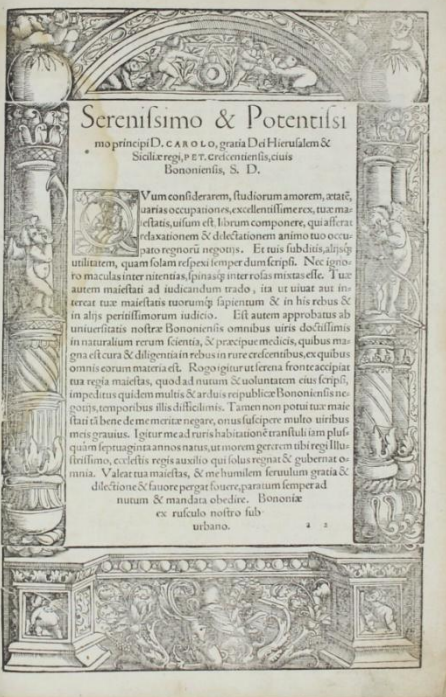 Serenissimo & Potentissi
mo principi D. CAROLO, gratia Dei Hierusalem &
Siciliæ regi, PET. Crescentiensis, ciuis
Bononiensis, S. D.
CVum considerarem, studiorum amorem, ætatē,
uarias occupationes, excellentissime rex, tuæ ma-
iestatis, uisum est, librum componere, qui afferat
relaxationem & dilectationem animo tuo occu-
pato regnorū negotijs. Et tuis subditis, alijsq;
utilitatem, quam solam respexi semper dum scripsi. Nec igno-
ro maculas inter nitentias, spinasq; inter rosas mixtas esse. Tuæ
autem maiestati ad iudicandum trado, ita ut uiuat aut in-
tereat tuæ maiestatis tuorumq; sapientum & in his rebus &
in alijs peritissimorum iudicio. Est autem approbatus ab
uniuersitatis nostræ Bononiensis omnibus uiris doctissimis
in naturalium rerum scientia, & præcipue medicis, quibus ma-
gna est cura & diligentia in rebus in rure crescentibus, ex quibus
omnis eorum materia est. Rogo igitur ut serena fronte accipiat
tua regia maiestas, quod ad nutum & uoluntatem eius scripsi,
impeditus quidem multis & arduis reipublicæ Bononiensis ne-
gotijs, temporibus illis difficilimis. Tamen non potui tuæ maie
stati tā bene de me meritæ negare, onus suscipere multo uiribus
meis grauius. Igitur me ad ruris habitationē transtuli iam plus-
quàm septuaginta annos natus, ut morem gererem tibi regi Illu-
strissimo, cœlestis regis auxilio qui solus regnat & gubernat o-
mnia. Valeat tua maiestas, & me humilem seruulum gratia &
dilectione & fauore pergat fouere, paratum semper ad
nutum & mandata obedire. Bononiæ
ex rusculo nostro sub
urbano.
a 2